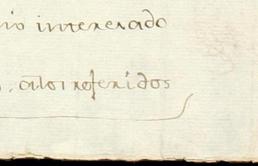 interesado
a los referidos